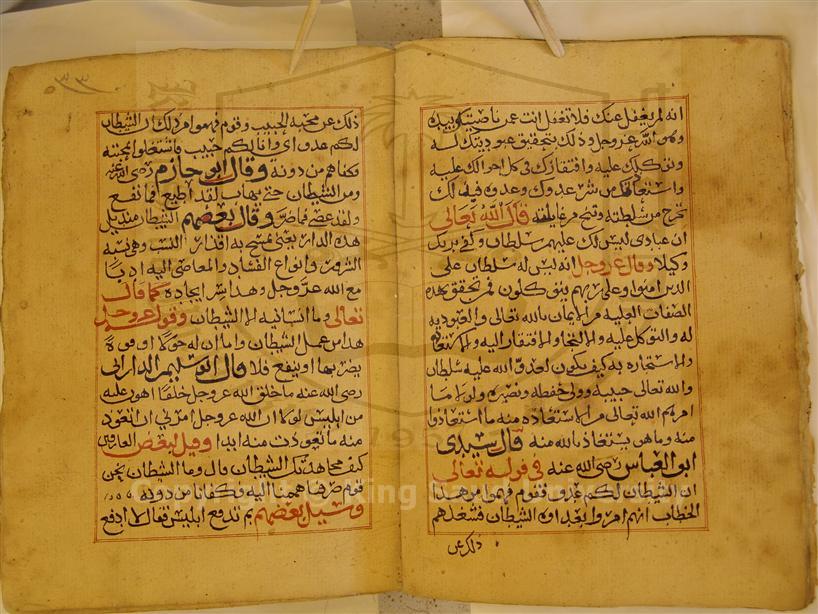 انه لم يغفل عنك فلا تغفل انت عمن ناصيتك بيده
وهو الله عز وجل وذلك بتحقيق عبوديتك له
وتوكلك عليه وافتقارك في كل احوالك عليه
واستعاذتك من شر عدوك وعدوه
تخرج من سلطته وتنج من غايلته قال الله تعالى
ان عبادي ليس لك عليهم سلطان وكفى بربك
وكيلا وقال عز وجل انه ليس له سلطان على
الذين امنوا وعلى ربهم يتوكلون فمن تحقق بهذه
الصفات العلية من الايمان بالله تعالى والعبودية
له والتوكل عليه والالتجا والافتقار اليه والاستعاذة
والاستجاره به كيف يكون لعدو الله عليه سلطان
والله تعالى حبيبه وولي حفظه ونصره ولولا ما
امرهم الله تعالى من الاستعاذه منه ما استعاذوا
منه وما هي يستعاذ بالله منه قال سيدي
ابو العباس رضي الله عنه في قوله تعالى
ان الشيطان لكم عدو فقوم فهموا من هذا
الخطاب انهم امروا بعداوة الشيطان فشغلهم
ذلك عن
ذلك عن محبة الحبيب وقوم فهموا من ذلك ان الشيطان
لكم عدو اي وانا لكم حبيب فاشتغلوا بمحبته
وكفاهم من دونه وقال ابو حازم رضي الله عنه
ومن الشيطان حتى يهاب لقد اطيع فما نفع
ولقد عصي فما ضر وقال بعضهم الشيطان منديل
هذه الدار يعني مسح به اقذار النسب وهي نسبة
الشرور وانواع الفساد والمعاصي اليه ادبا
مع الله عز وجل وهذا سر ايجاده كما قال
تعالى وما انسانيه الا الشيطان وقوله عز وجل
هذا من عمل الشيطان واما ان له حولا او قوة
يضر بها او ينفع فلا قال ابو سليمن الداراني
رضي الله عنه ما خلق الله عز وجل خلقا اهون عليه
من ابليس لولا ان الله عز وجل امرني ان اتعوذ
منه ما تعوذت منه ابدا وقيل لبعض العارفين
كيف مجاهدتك الشيطان قال وما الشيطان نحن
قوم صرفنا هممنا اليه فكفانا من دونه
وسيل بعضهم بم تدفع ابليس فقال لا ادفع